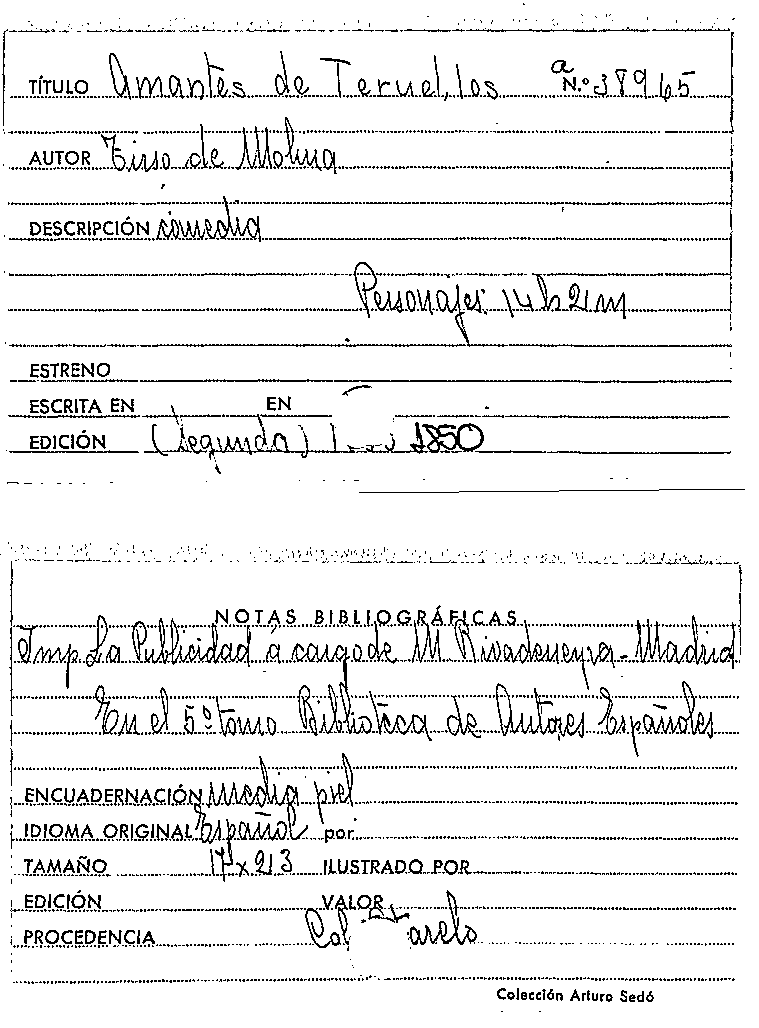 TÍTULO Amantes de Teruel, los a N.º 38965
AUTOR Tirso de Molina
DESCRIPCIÓN comedia
Personajes: 14 h 2 m
ESTRENO
ESCRITA EN EN
EDICIÓN (Segunda) 1850
NOTAS BIBLIOGRÁFICAS
Imp La Publicidad á cargo de M Rivadeneyra - Madrid
En el 5º tomo Biblioteca de Autores Españoles
ENCUADERNACIÓN media piel
IDIOMA ORIGINAL Español por
TAMAÑO 17 x 213 ILUSTRADO POR
EDICIÓN VALOR
PROCEDENCIA Col
Colección Arturo Sedó